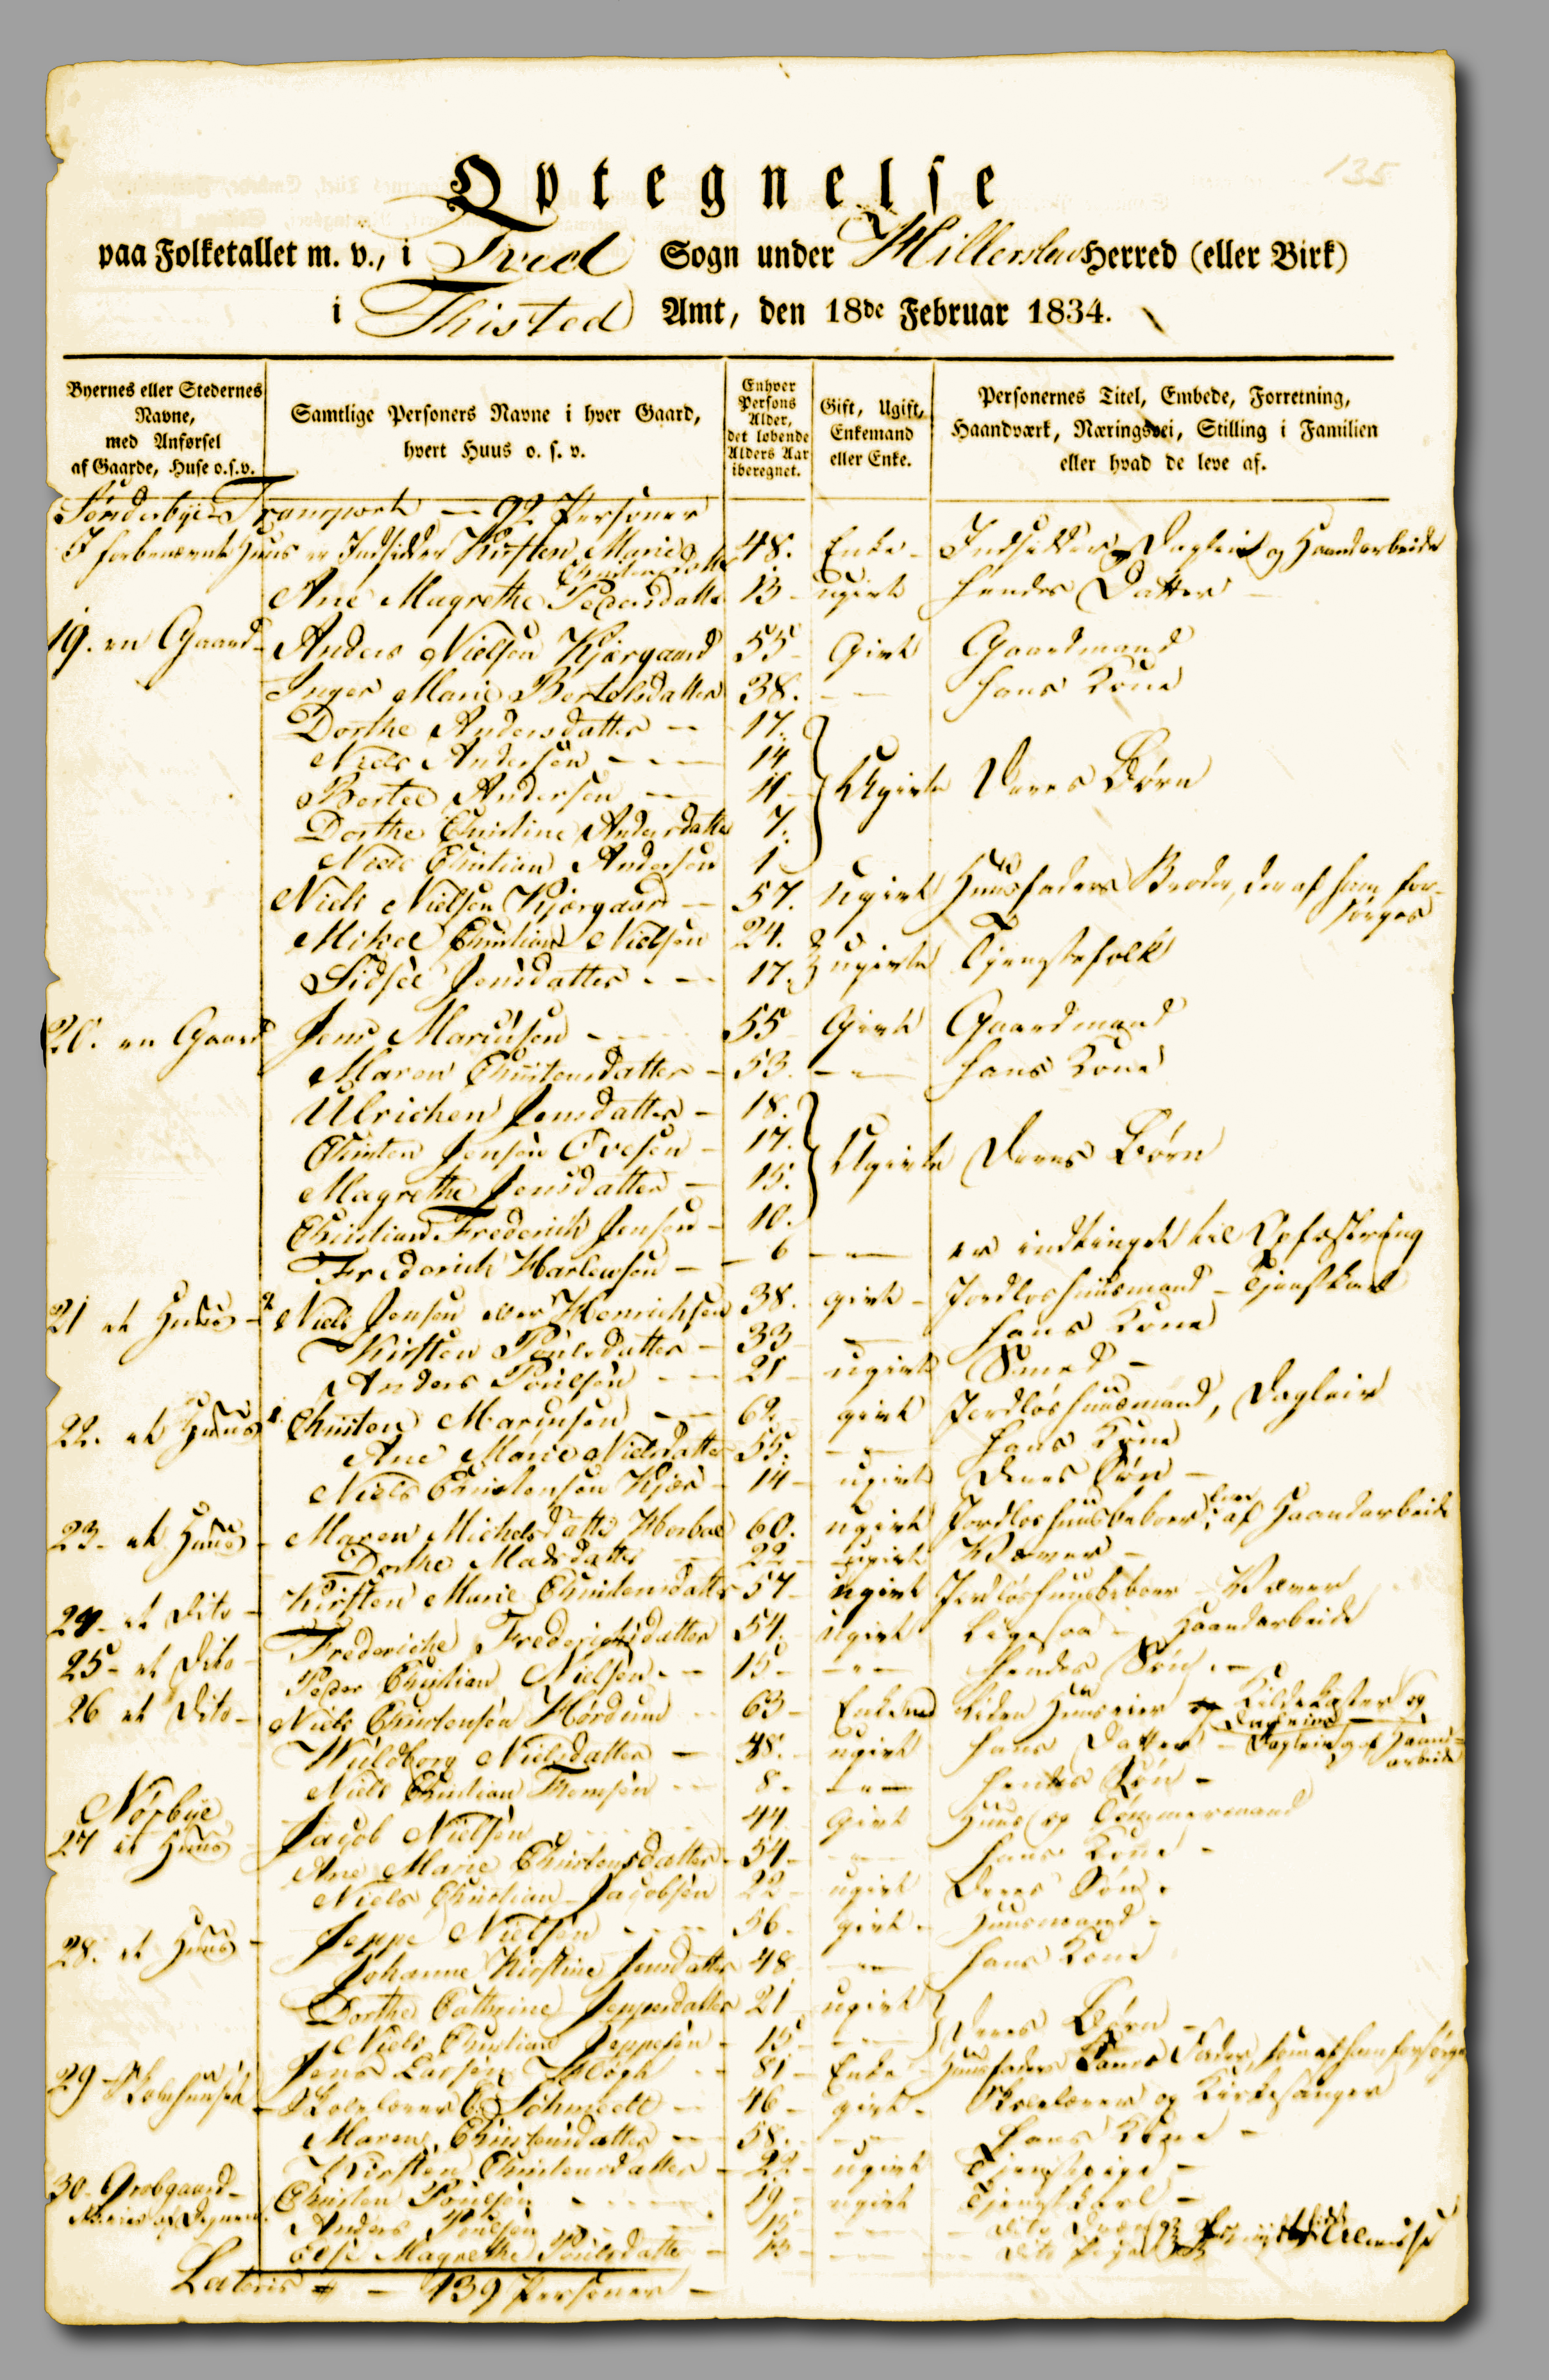 135
Optegnelse
paa Folketallet m. v., i Tved Sogn under Hillerslev Herred (eller Birk)
i Thisted Amt, den 18de Februar 1834.
Byernes eller Stedernes Navne, med Anførsel af Gaarde, Huse o.s.v.
Samtlige Personers Navne i hver Gaard, hvert Huus o. s. v.
Enhver Persons Alder, det løbende Alders Aar iberegnet.
Gift, Ugift, Enkemand eller Enke.
Personernes Titel, Embede, Forretning, Haandværk, Næringsvei, Stilling i Familien eller hvad de leve af.
Sønderbye Transport — 92 Personer
I forbenævnte Huus er Indsidder Kirsten Marie Christensdatter 48. Enke - Indsidder, Dagleie og Haandarbeide
Ane Magrethe Pedersdatter 13 - ugivt hendes Datter
19. en Gaard - Anders Nielsen Kjærgaard 55 - Givt Gaardmand
Inger Marie Bertelsdatter 38. — hans Kone
Dorthe Andersdatter — 17.
Niels Andersen — 14
Bertel Andersen — 11 - Ugivte Deres Børn
Dorthe Christine Andersdatter 7.
Niels Christian Andersen 1
Niels Nielsen Kjærgaard — 57. ugivt Huusfaders Broder, der af ham forsørges
Mikel Christian Nielsen 24.
Sidsel Jensdatter - — 17. ugivte Tjenestefolk
20. en Gaard Jens Marinsen - 55 Givt Gaardmand
Maren Christensdatter - 53. — hans Kone
Ulrichen Jensdatter - 18.
Christen Jensen Ovesen - 17. Ugivte Deres Børn
Magrethe Jensdatter - 15.
Christian Frederich Jensen - 10.
Frederich Harlewsen — 6 — er indtinget til Opfostring
21 et Huus - Niels Jensen Henrichsen 38. givt - Jordløs huusmand - Tjenstkarl
Kirsten Poulsdatter - 33 — hans Kone
Anders Poulsen — 21 - ugivt Smed -
22. et Huus Christen Marinsen — 62 givt Jordløs huusmand, Dagleier
Ane Marie Nielsdatter 55. — hans Kone
Niels Christensen Kjær - 14 - ugivt deres Søn -
23 - et Huus - Maren Michelsdatter 60. ugivt Jordløs huusbeboer, lever af Haandarbeide
Dorthe Madsdatter — 22 - ugivt Væver -
24 - et Dito - Kirsten Marie Christensdatter 57 - ugivt Jordløs huusbeboer - Væver
25 - et Dito - Frederiche Frederichsdatter 54. - ugivt Ligesaa - Haandarbeide
Peder Christian Nielsen - 15 - — hendes Søn. -
26 et Dito - Niels Christensen Hørdum - 63 - Enkemd liden Huuseier og
Wulborg Nielsdatter — 38. - ugivt hans Datter - Dagleie og af Haandarbeide
Niels Christian Thomsen - 8 - — hendes Søn -
Nørbye
27 et Huus Jacob Nielsen 44 givt Huus og Tømmermand
Ane Marie Christensdatter - 54 - — hans Kone -
Niels Christian Jacobsen 22 - ugivt Deres Søn.
28. et Huus - Jeppe Nielsen - 56 - givt - Huusmand -
Johanne Kirstine Jensdatter 48 — hans Kone
Dorthe Cathrine Jeppesdatter 21 ugivt
Niels Christian Jeppesen - 15 - — Deres Børn -
Jens Larsen 81 - Enke - Huusfaders Fader, som af ham forsørges
29 Skolehuset - Skolelærer Schmidt — 46 - givt - Skolelærer og Kirkesanger
Maren Christensdatter — 58. — hans Kone -
Kirsten Christensdatter - 22 - ugivt Tjenestepige -
30 - Christen Poulsen - 19 - ugivt Tjenestekarl -
Anders Poulsen - 15 - — dito
Else Magrethe Poulsdatter - 13 - — dito
Lateris - 139 Personer -